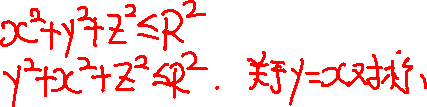 x²+y²+z²≤R²
y²+x²+z²≤R². 关于y=x对称、